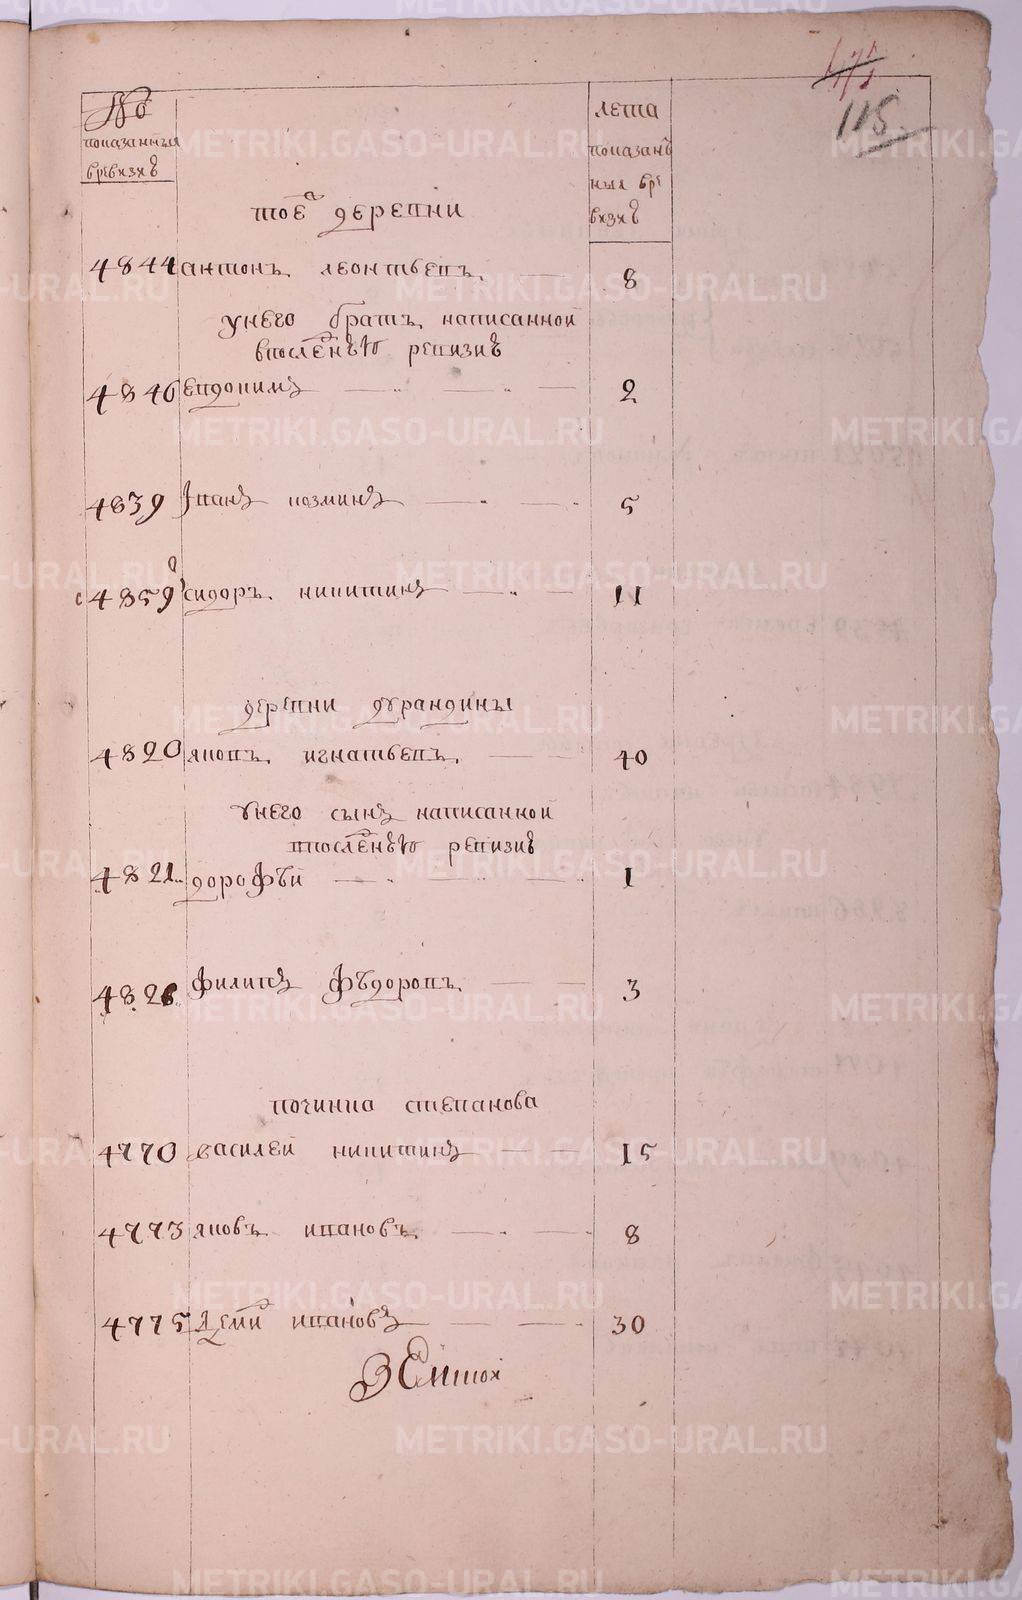 115
№
показанныя
вревизиѣ
лета
показан
ныя вре
визиѣ
тоеⷤ деревни
4844 антонъ леонтьевъ 8
унего братъ написанной
впослѣднѣю ревизиѣ
4846 евдокимъ 2
4839 Iванъ козминъ 5
4859 сидоръ никитинъ 11
деревни дурандины
4820 яковъ игнатьевъ 40
унего сынъ написанной
впослѣднѣю ревизиѣ
4821 дорофѣи 1
филипъ фѣдоровъ 3
починка степанова
4770 василеи никитинъ 15
4773 яковъ ивановъ 8
4775 ивановъ 30
METRIKI.GASO-URAL.RU